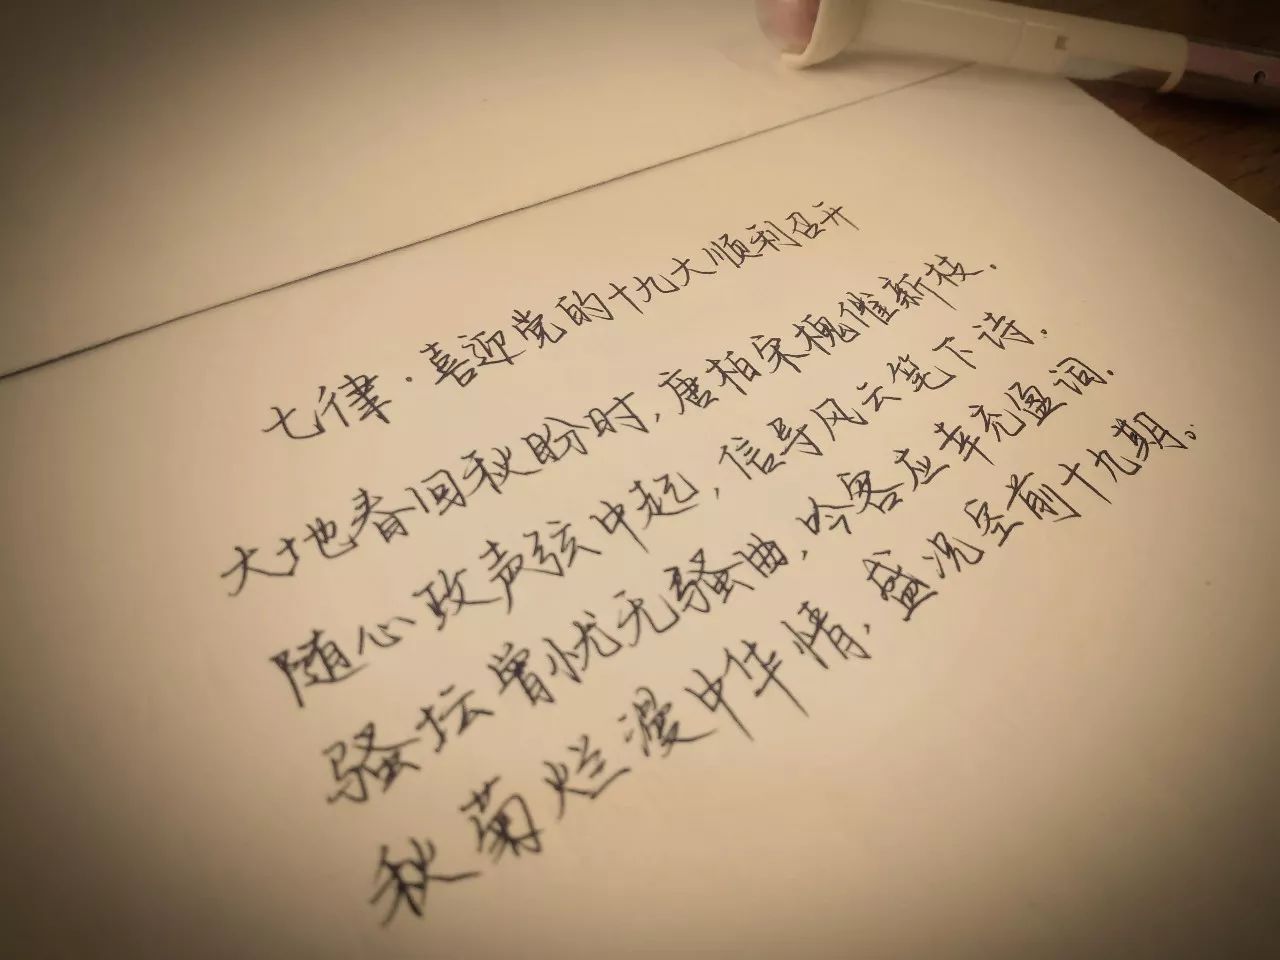 七律·喜迎党的十九大顺利召开
大地春回秋盼时，唐柏宋槐催新枝．
随心政声弦中起，信导风云笔下诗．
骚坛曾忧无骚曲，吟客应幸充盈词．
秋菊烂漫中华情，盛况空前十九期。